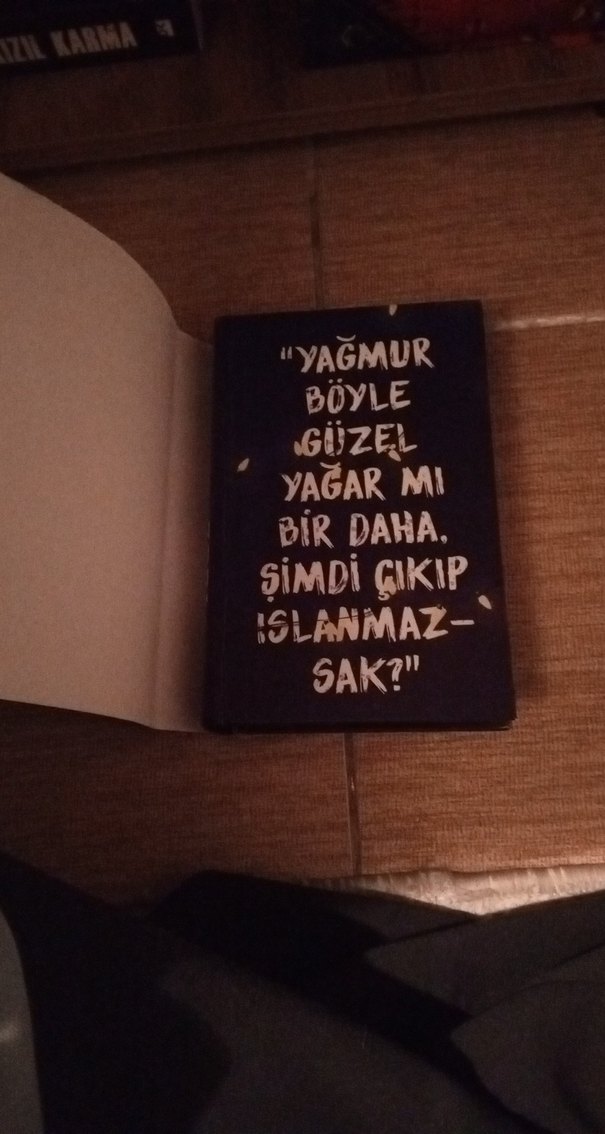 KIZIL KARMA
"YAĞMUR
BÖYLE
GÜZEL
YAĞAR MI
BİR DAHA,
ŞİMDİ ÇIKIP
ISLANMAZ-
SAK?"